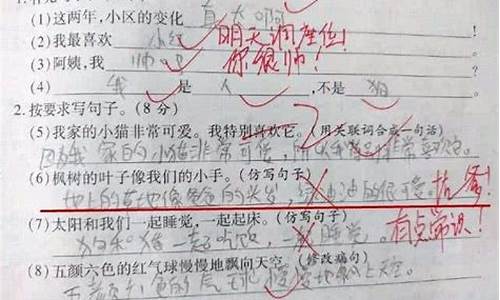 (1)这两年,小区的变化 真大啊
(2)我最喜欢 小红 明天调座位!
(3)阿姨,我 帅吧 你很帅!
(4) 我 是 人 ,不是 狗
2.按要求写句子。(8分)
(5)我家的小猫非常可爱。我特别喜欢它。(用关联词合成一句话)
因为我家的小猫非常可爱,所以我 非常喜欢它。
(6)枫树的叶子像我们的小手。(仿写句子)
地上的草地像爸爸的头发,绿油油的很 抗
(7)太阳和我们一起睡觉,一起起床。(仿写句子)
狗和猪一起吃饭,一起睡觉。有点常识!
(8)五颜六色的红气球慢慢地飘向天空。(修改病句)
五颜六色的气球慢慢地飘上天空。